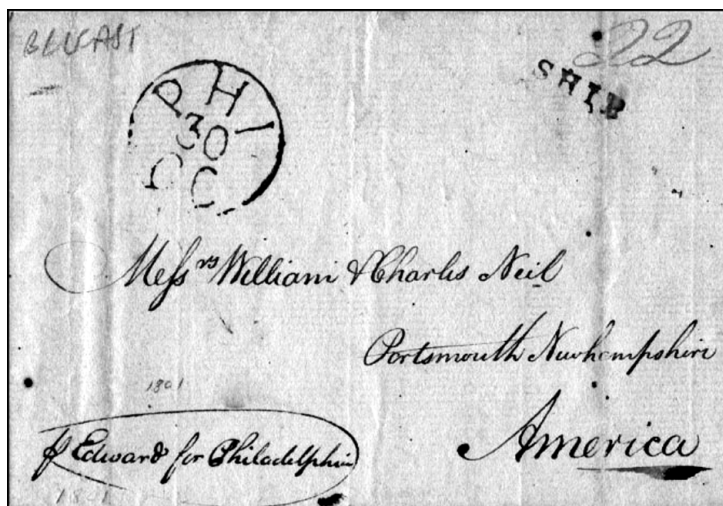 BELFAST
22
SHIP
PHI
30
OC
Messrs William & Charles Neil
Portsmouth Newhempshire
America
1801
p Edward for Philadelphia
1801